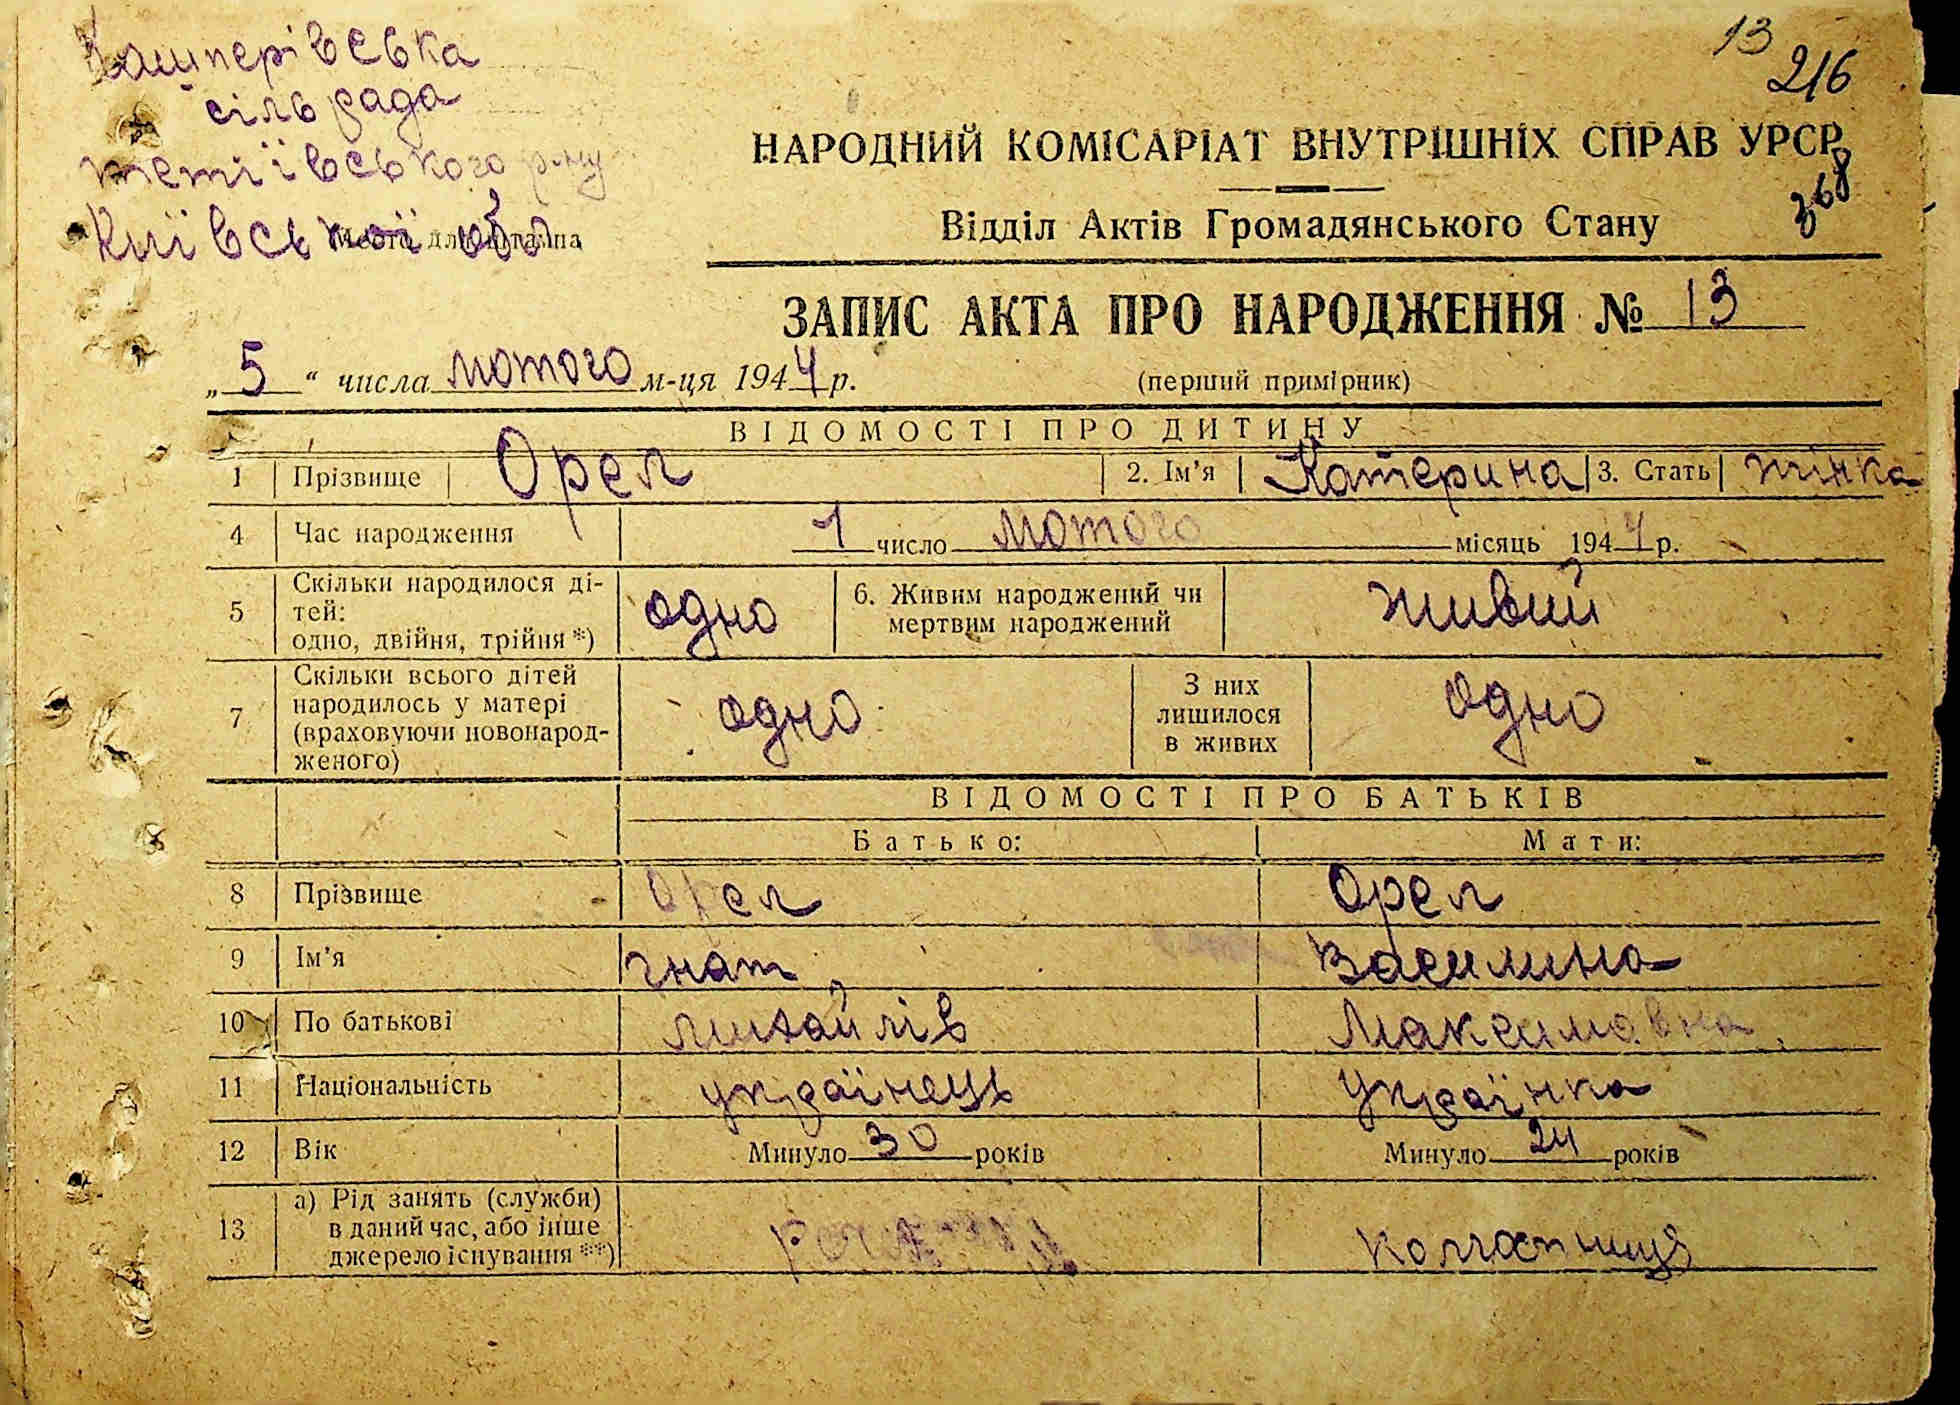 Кашперівська
сільрада
тетіївського р-ну
Київської обл.
Место для штампа
13
216
368
НАРОДНИЙ КОМІСАРІАТ ВНУТРІШНІХ СПРАВ УРСР
Відділ Актів Громадянського Стану
ЗАПИС АКТА ПРО НАРОДЖЕННЯ № 13
„ 5 “ числа лютого м-ця 1944 р. (перший примірник)
ВІДОМОСТІ ПРО ДИТИНУ
1 Прізвище Орел 2. Ім’я Катерина 3. Стать жінка
4 Час народження 1 число лютого місяць 1944 р.
5 Скільки народилося ді-
тей:
одно, двійня, трійня *) одно 6. Живим народжений чи
мертвим народжений живий
7 Скільки всього дітей
народилось у матері
(враховуючи новонарод-
женого) одно З них
лишилося
в живих одно
ВІДОМОСТІ ПРО БАТЬКІВ
Батько: Мати:
8 Прізвище Орел Орел
9 Ім’я гнат Василина
10 По батькові михайлів Максимовна
11 Національність українець Українка
12 Вік Минуло 30 років Минуло 24 років
13 а) Рід занять (служби)
в даний час, або інше
джерело існування **) колгоспниця